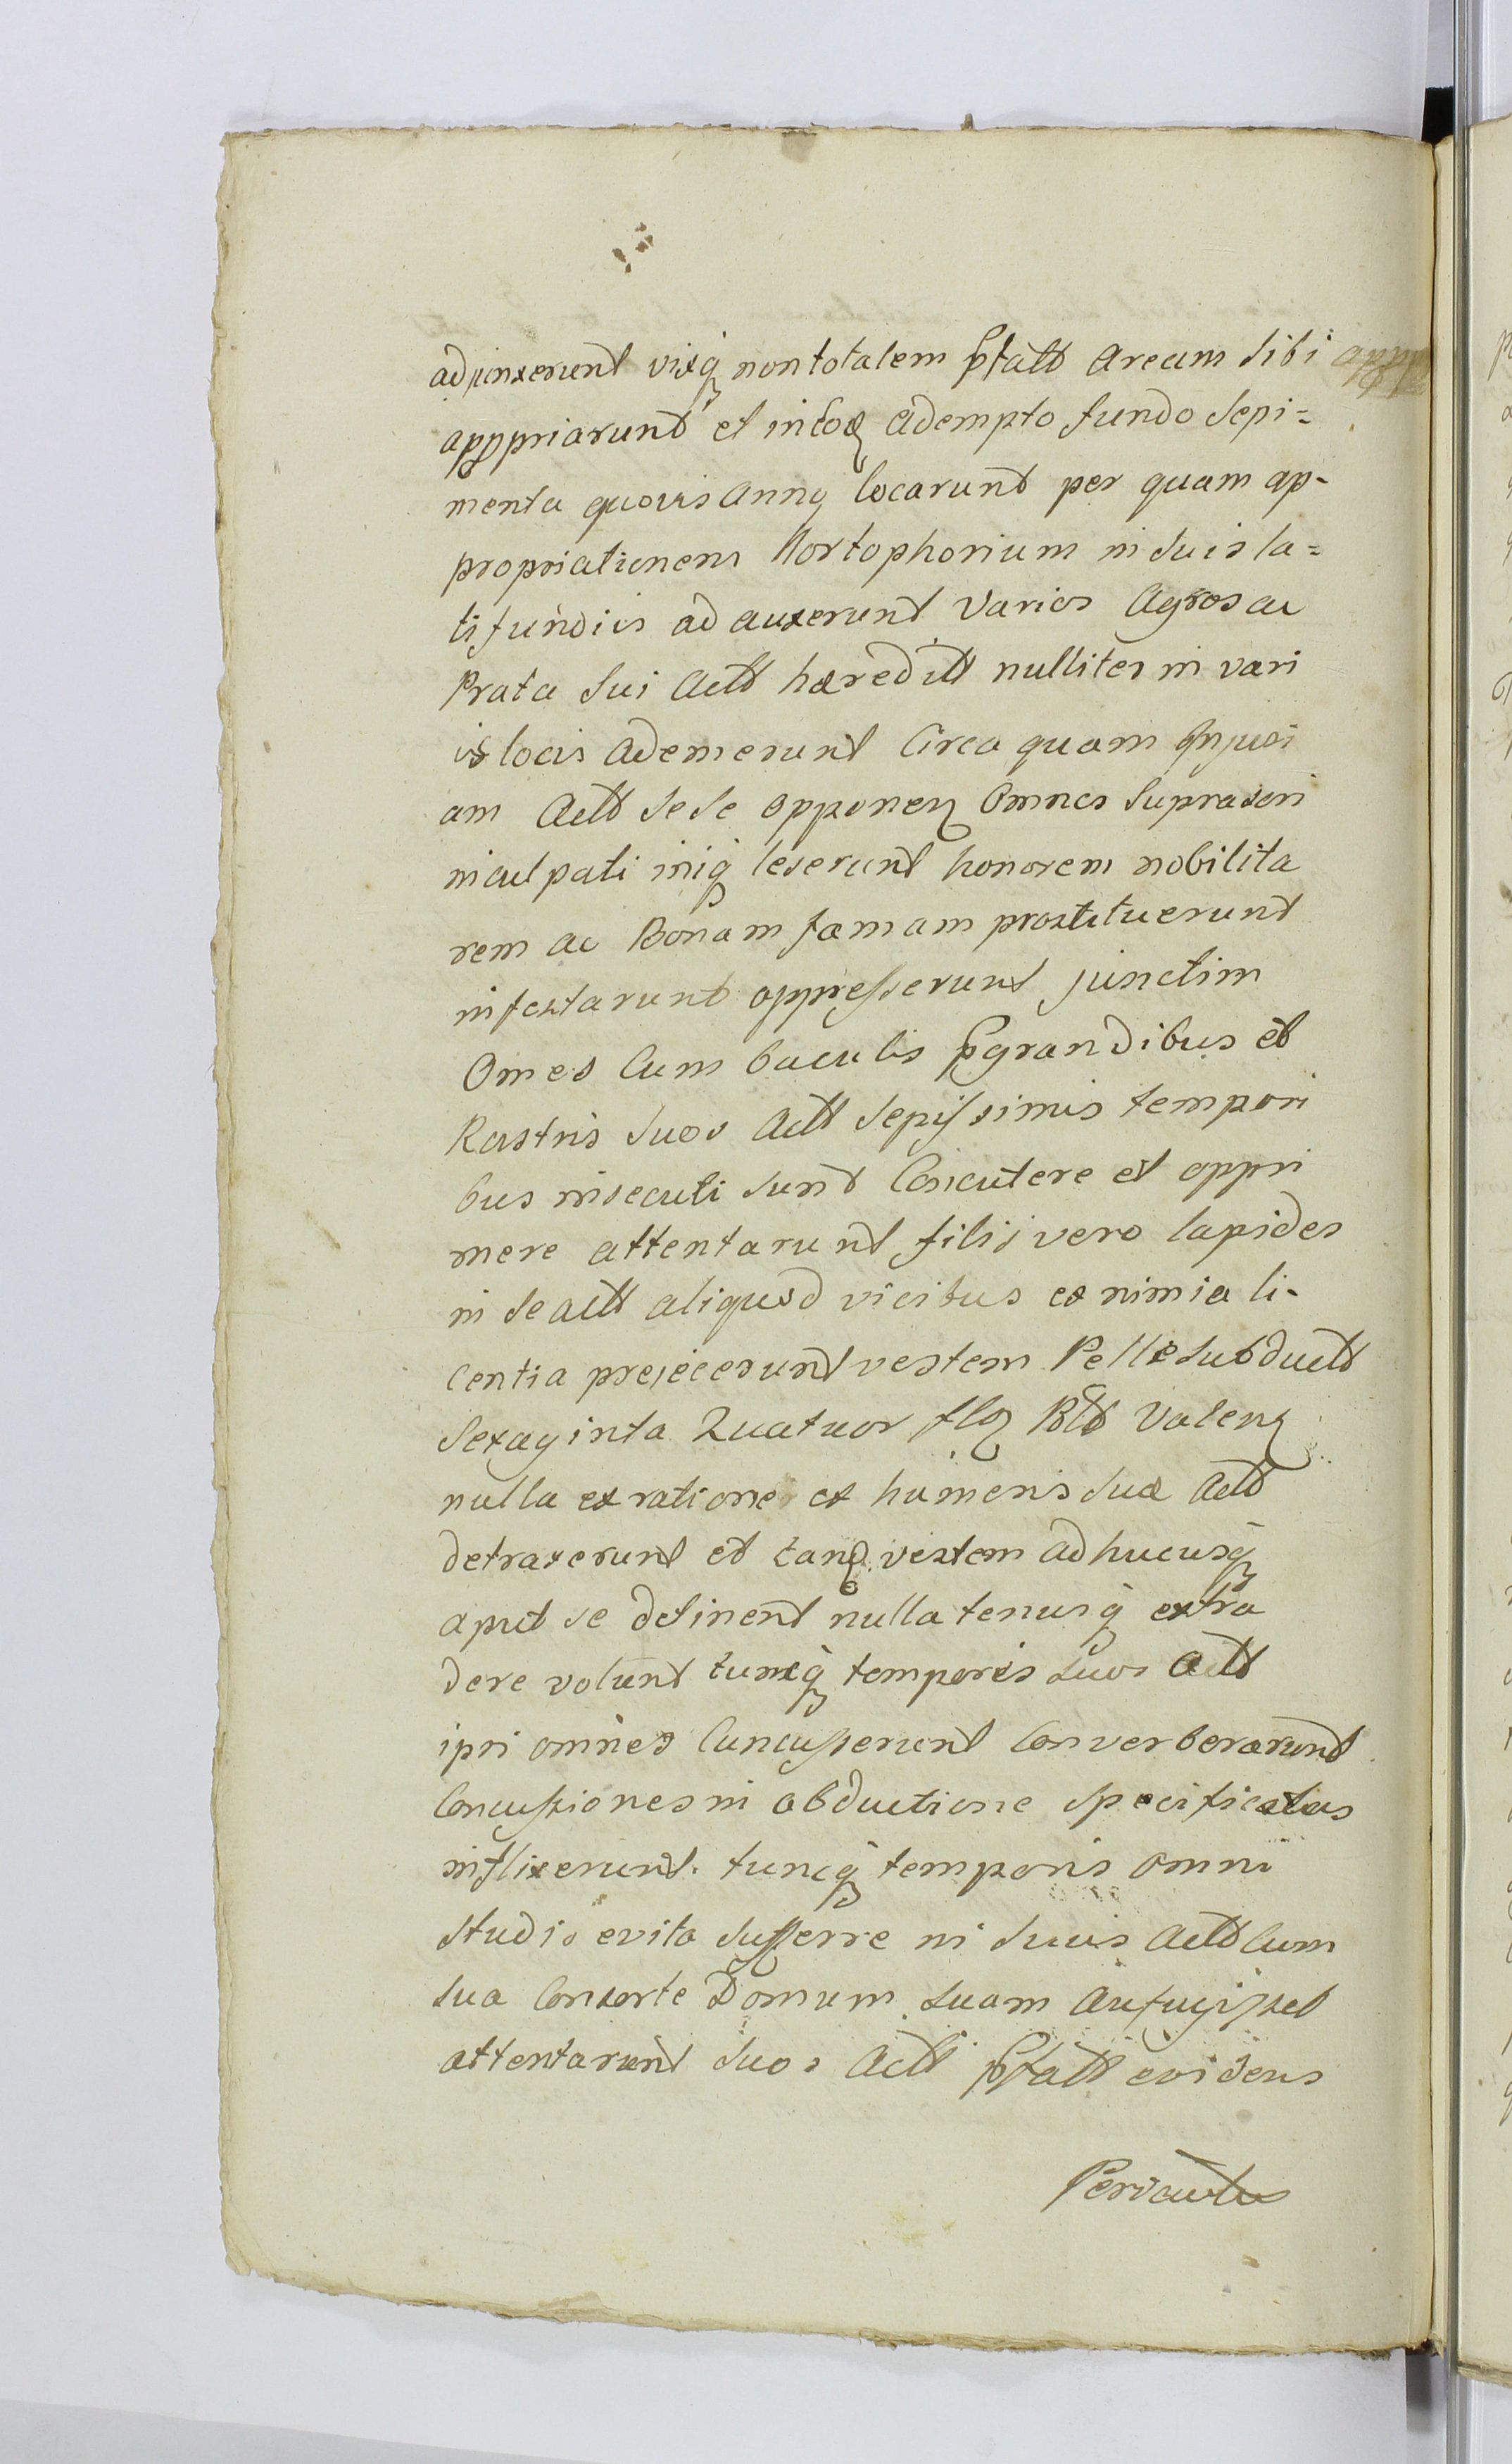 adjunxerunt vixq non totalem pfatt Aream sibi
appppriarunt et in eoq adempto fundo sepi=
menta quovis Anno locarunt per quam ap-
propriationem Hortophorium in suis la=
tifundiis ad auxerunt varios Agros ac
Prata sui Actt hæreditt nulliter in vari
is locis Ademerunt Circa quam Injuri
am Actt sese opponen Omnes suprascri
inculpati iniq leserunt honorem nobilita
rem ac Bonam famam prostituerunt
infestarunt oppresserunt junctim
Omes Cum baculis pgrandibus et
Rastris suos Actt sepissimis tempori
bus insecuti sunt Concutere et oppri
mere attentarunt filij vero lapides
in se actt aliquod vicibus ex nimia li-
centia projecerunt vestem Pelle subductt
Sexaginta Quatuor flo Rltt Valen
nulla ex ratione ex humeris suæ Actt
detraxerunt et eanq vestem ad hucusq
aput se detinent nulla tenusq extra
dere volunt tuncq temporis suos Actt
ipsi omnes Concusserunt Converberarunt
Concussiones in obductione specificatas
inflixerunt. tuncq temporis omni
studio e vita sufferre ni suus Actt Cum
sua Consorte Domum suam Aufugisset
attentarunt suos Actt pfatt evidens